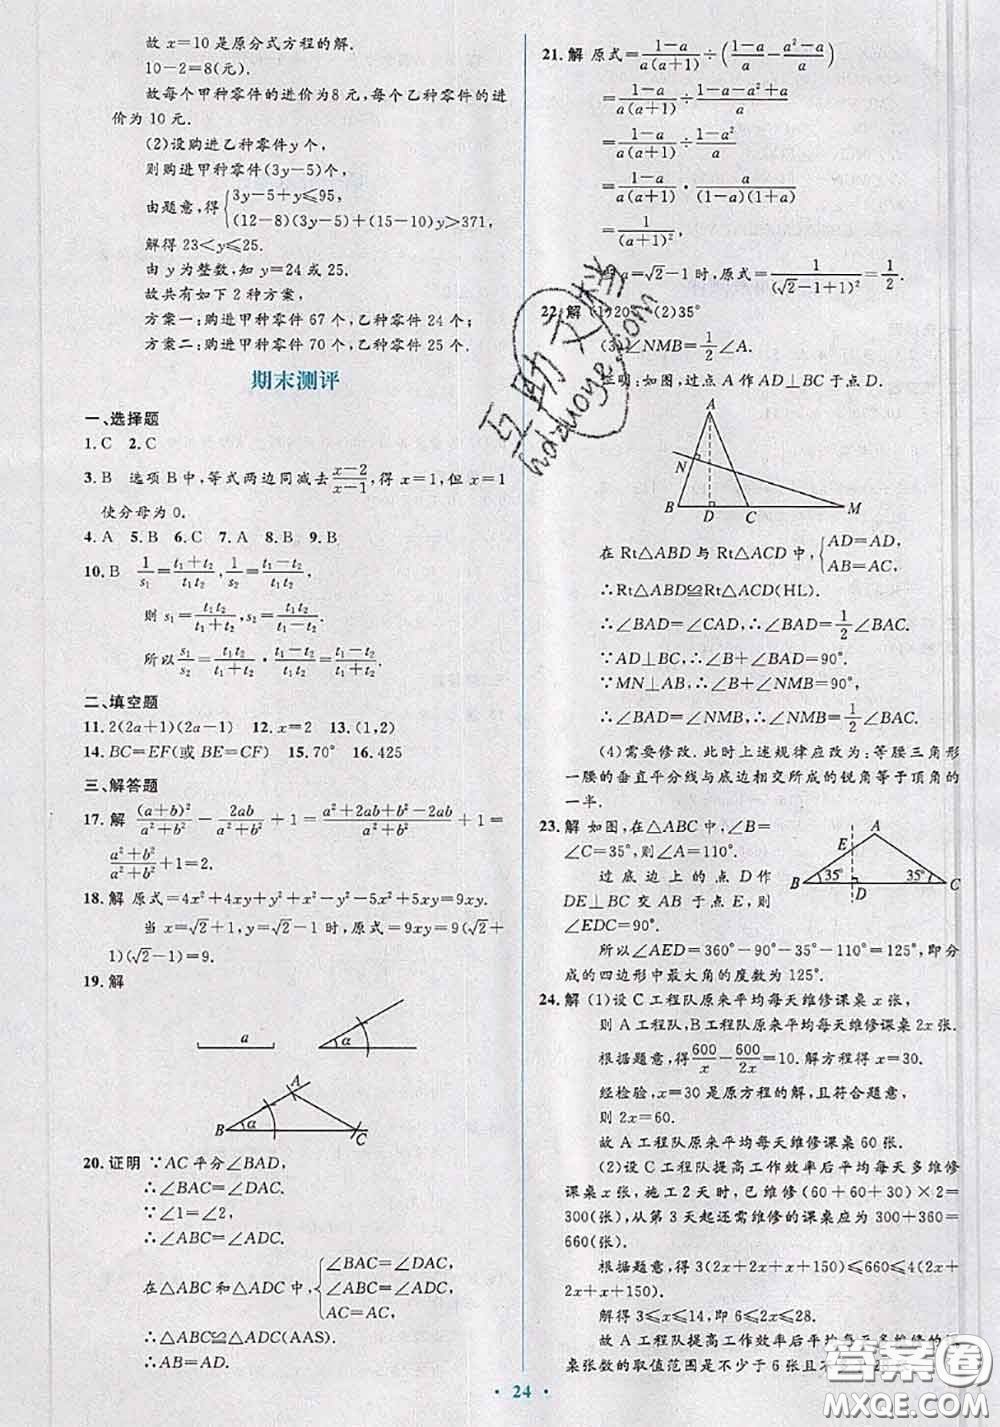 故 x=10 是原分式方程的解.
10-2=8(元).
故每个甲种零件的进价为8元,每个乙种零件的进
价为 10 元.
(2)设购进乙种零件 y 个,
则购进甲种零件(3y-5)个,
由题意,得{3y-5+y≤95,
(12-8)(3y-5)+(15-10)y>371,
解得 23<y≤25.
由 y 为整数,知 y=24 或 25.
故共有如下 2 种方案,
方案一:购进甲种零件 67 个,乙种零件 24 个;
方案二:购进甲种零件 70 个,乙种零件 25 个.
期末测评
一、选择题
1.C 2.C
3.B 选项 B 中,等式两边同减去(x-2)/(x-1),得 x=1,但 x=1
使分母为 0.
4.A 5.B 6.C 7.A 8.B 9.B
10.B 1/s₁=(t₁+t₂)/(t₁t₂),1/s₂=(t₁-t₂)/(t₁t₂),
则 s₁=t₁t₂/(t₁+t₂),s₂=t₁t₂/(t₁-t₂).
所以 s₁/s₂=t₁t₂/(t₁+t₂)·(t₁-t₂)/(t₁t₂)=(t₁-t₂)/(t₁+t₂).
二、填空题
11.2(2a+1)(2a-1) 12.x=2 13.(1,2)
14.BC=EF(或 BE=CF) 15.70° 16.425
三、解答题
17.解 (a+b)²/(a²+b²)-2ab/(a²+b²)+1=(a²+2ab+b²-2ab)/(a²+b²)+1=
(a²+b²)/(a²+b²)+1=2.
18.解 原式=4x²+4xy+y²+x²-y²-5x²+5xy=9xy.
当 x=√2+1,y=√2-1 时,原式=9xy=9(√2+
1)(√2-1)=9.
19.解
a
α
A
B
α
C
20.证明 ∵AC 平分∠BAD,
∴∠BAC=∠DAC.
∵∠1=∠2,
∴∠ABC=∠ADC.
在△ABC 和△ADC 中,{∠BAC=∠DAC,
∠ABC=∠ADC,
AC=AC,
∴△ABC≌△ADC(AAS).
∴AB=AD.
21.解 原式=(1-a)/(a(a+1))÷(1/a-(a²-a)/a)
=(1-a)/(a(a+1))÷(1-a²+a)/a
=(1-a)/(a(a+1))÷(1-a²)/a
=(1-a)/(a(a+1))·a/((1-a)(1+a))
=1/(a+1)²,
a=√2-1 时,原式=1/(√2-1+1)²=1/2.
22.解 (1)20° (2)35°
(3)∠NMB=1/2∠A.
证明:如图,过点 A 作 AD⊥BC 于点 D.
A
N
B
D
C
M
在 Rt△ABD 与 Rt△ACD 中,{AD=AD,
AB=AC,
∴Rt△ABD≌Rt△ACD(HL).
∴∠BAD=∠CAD,∴∠BAD=1/2∠BAC.
∵AD⊥BC,∴∠B+∠BAD=90°.
∵MN⊥AB,∴∠B+∠NMB=90°.
∴∠BAD=∠NMB,∴∠NMB=1/2∠BAC.
(4)需要修改.此时上述规律应改为:等腰三角形
一腰的垂直平分线与底边相交所成的锐角等于顶角的
一半.
23.解 如图,在△ABC 中,∠B=
∠C=35°,则∠A=110°.
过底边上的点 D 作
DE⊥BC 交 AB 于点 E,则
∠EDC=90°.
A
E
B
35°
D
35°
C
所以∠AED=360°-90°-35°-110°=125°,即分
成的四边形中最大角的度数为 125°.
24.解 (1)设 C 工程队原来平均每天维修课桌 x 张,
则 A 工程队、B 工程队原来平均每天维修课桌 2x 张.
根据题意,得600/x-600/2x=10.解方程得 x=30.
经检验,x=30 是原方程的解,且符合题意,
则 2x=60.
故 A 工程队原来平均每天维修课桌 60 张.
(2)设 C 工程队提高工作效率后平均每天多维修
课桌 x 张,施工 2 天时,已维修(60+60+30)×2=
300(张),从第 3 天起还需维修的课桌应为 300+360=
660(张).
根据题意,得 3(2x+2x+x+150)≤660≤4(2x+
2x+x+150).
解得 3≤x≤14,即 6≤2x≤28.
故 A 工程队提高工作效率后平均每天多维修的课
桌张数的取值范围是不少于 6 张且不
· 24 ·
互助文档
hdzuoye.com
答案圈
MXQE.COM